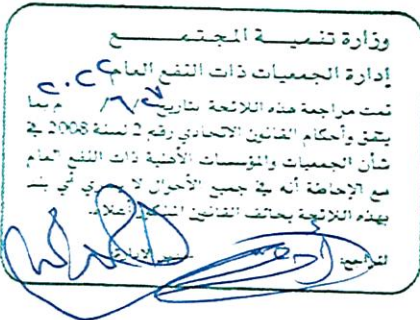 وزارة تنميــة المجتمــــع
إدارة الجمعيات ذات النفع العام
تمت مراجعة هذه اللائحة بتاريخ / ٦ / ٢٠٢٢ م بما
يتفق وأحكام القانون الاتحادي رقم 2 لسنة 2008 في
شأن الجمعيات والمؤسسات الأهلية ذات النفع العام
مع الإحاطة أنه في جميع الأحوال لا يسري أي بند
بهذه اللائحة يخالف القانون المذكور أعلاه.
المراجع: مدير الإدارة